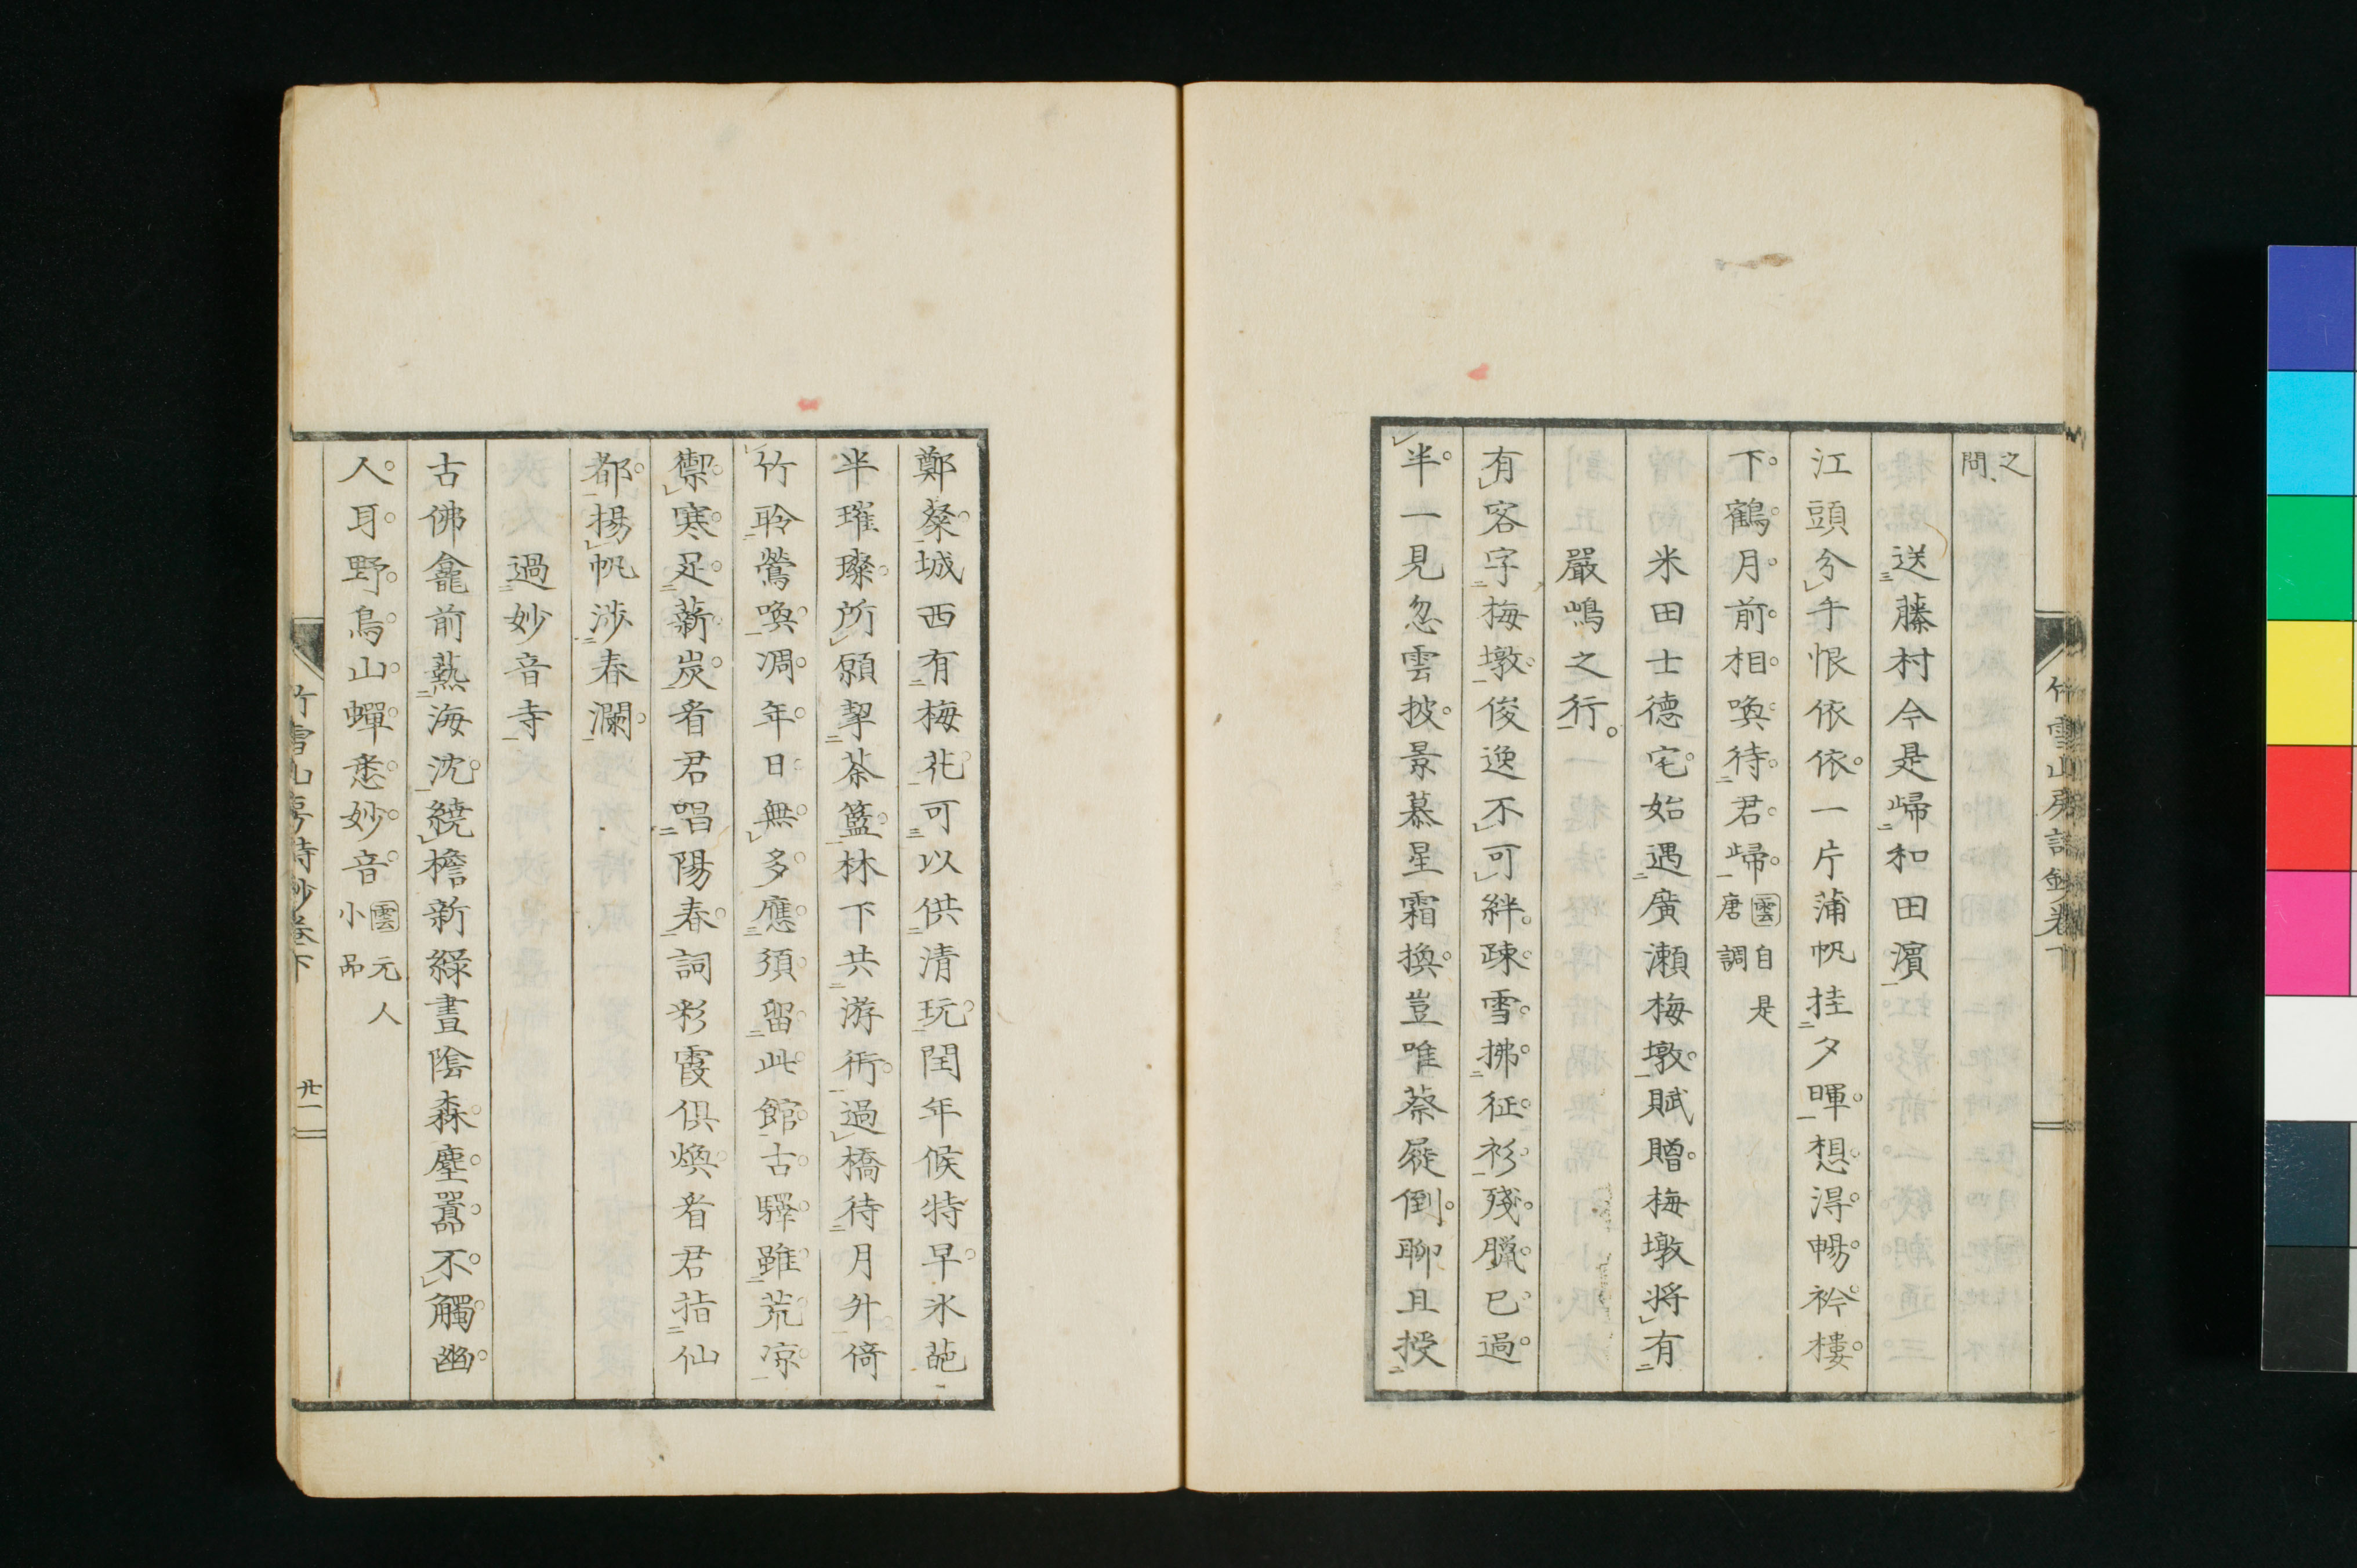 之
問
送藤村今是歸和田濵
江頭分手恨依依一片蒲帆挂夕暉想得暢衿樓
下鶴月前相喚待君歸雲自是
唐調
米田士德宅始遇廣瀬梅墩賦贈梅墩将有
嚴嶋之行
有客字梅墩俊逸不可絆疎雪拂征衫殘臘已過
半一見忽雲披景慕星霜換豈唯蔡屣倒聊且授
竹雪山房詩鈔卷下
鄭粲城西有梅花可以供清玩閏年候特早氷葩
半璀璨所願挈茶籃林下共游衎過橋待月升倚
竹聆鶯喚凋年日無多應須留此館古驛雖荒凉
禦寒足薪炭者君唱陽春詞彩霞俱煥者君指仙
都揚帆涉春瀾
過妙音寺
古佛龕前爇海沈繞檐新綠晝陰森塵囂不觸幽
人耳野鳥山蟬悉妙音雲元人
小品
竹雪山房詩鈔卷下
廿一